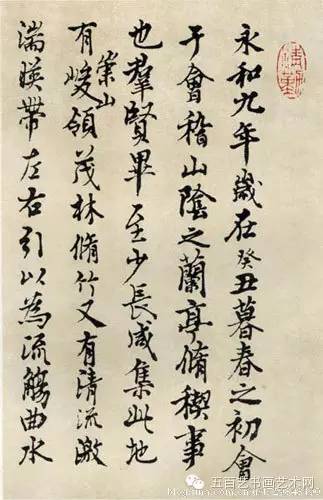 永和九年歲在癸丑暮春之初會
于會稽山陰之蘭亭脩稧事
也羣賢畢至少長咸集此地
有崇山峻領茂林脩竹又有清流激
湍暎帶左右引以為流觴曲水
五百艺书画艺术网